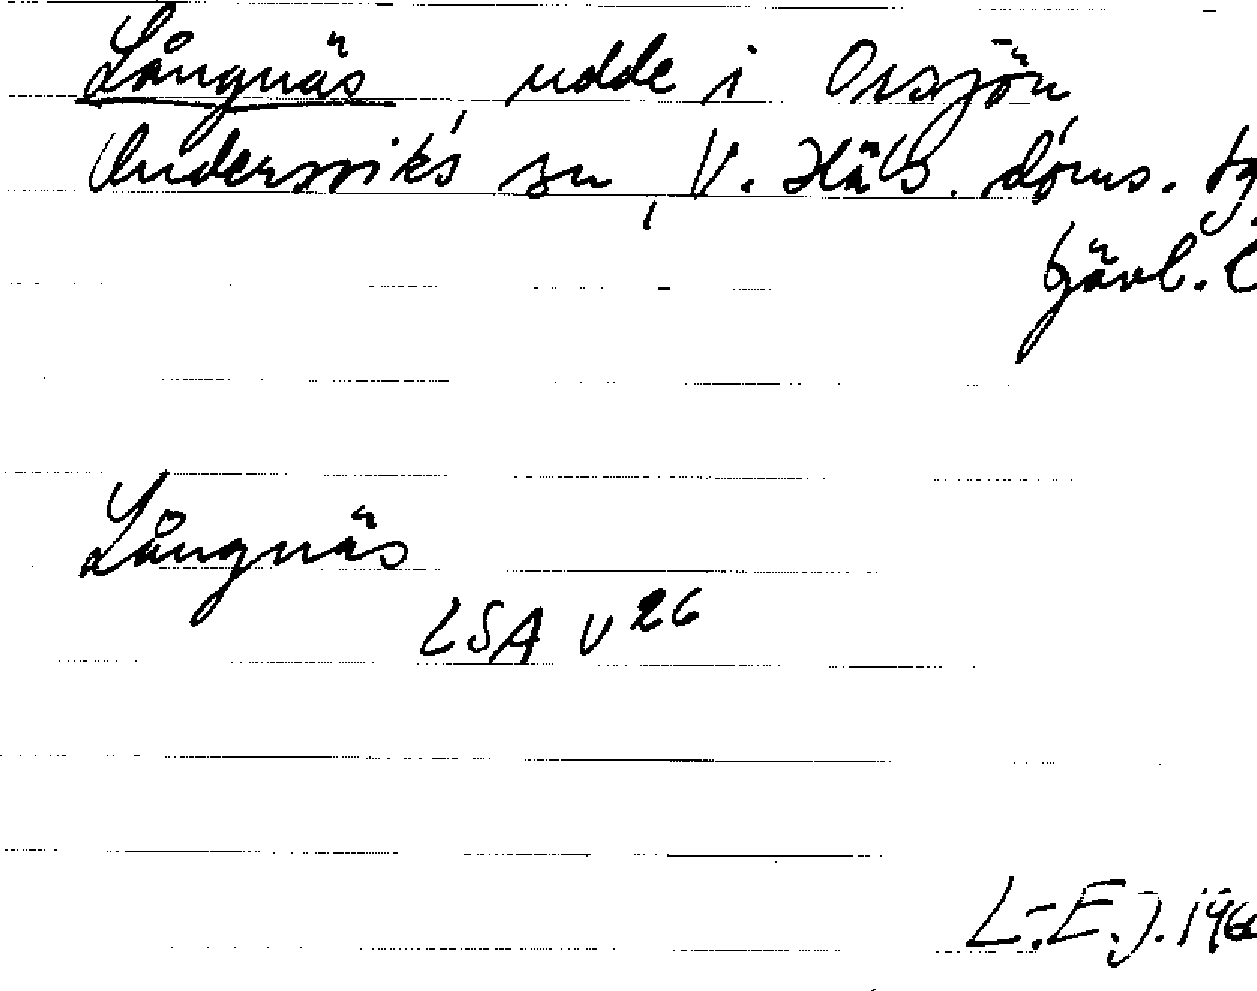 Långnäs, udde i Orsjön
Undersviks sn, V. Häls. doms. tg
Gävl. l
Långnäs
LSA V26
L.-E.J. 196